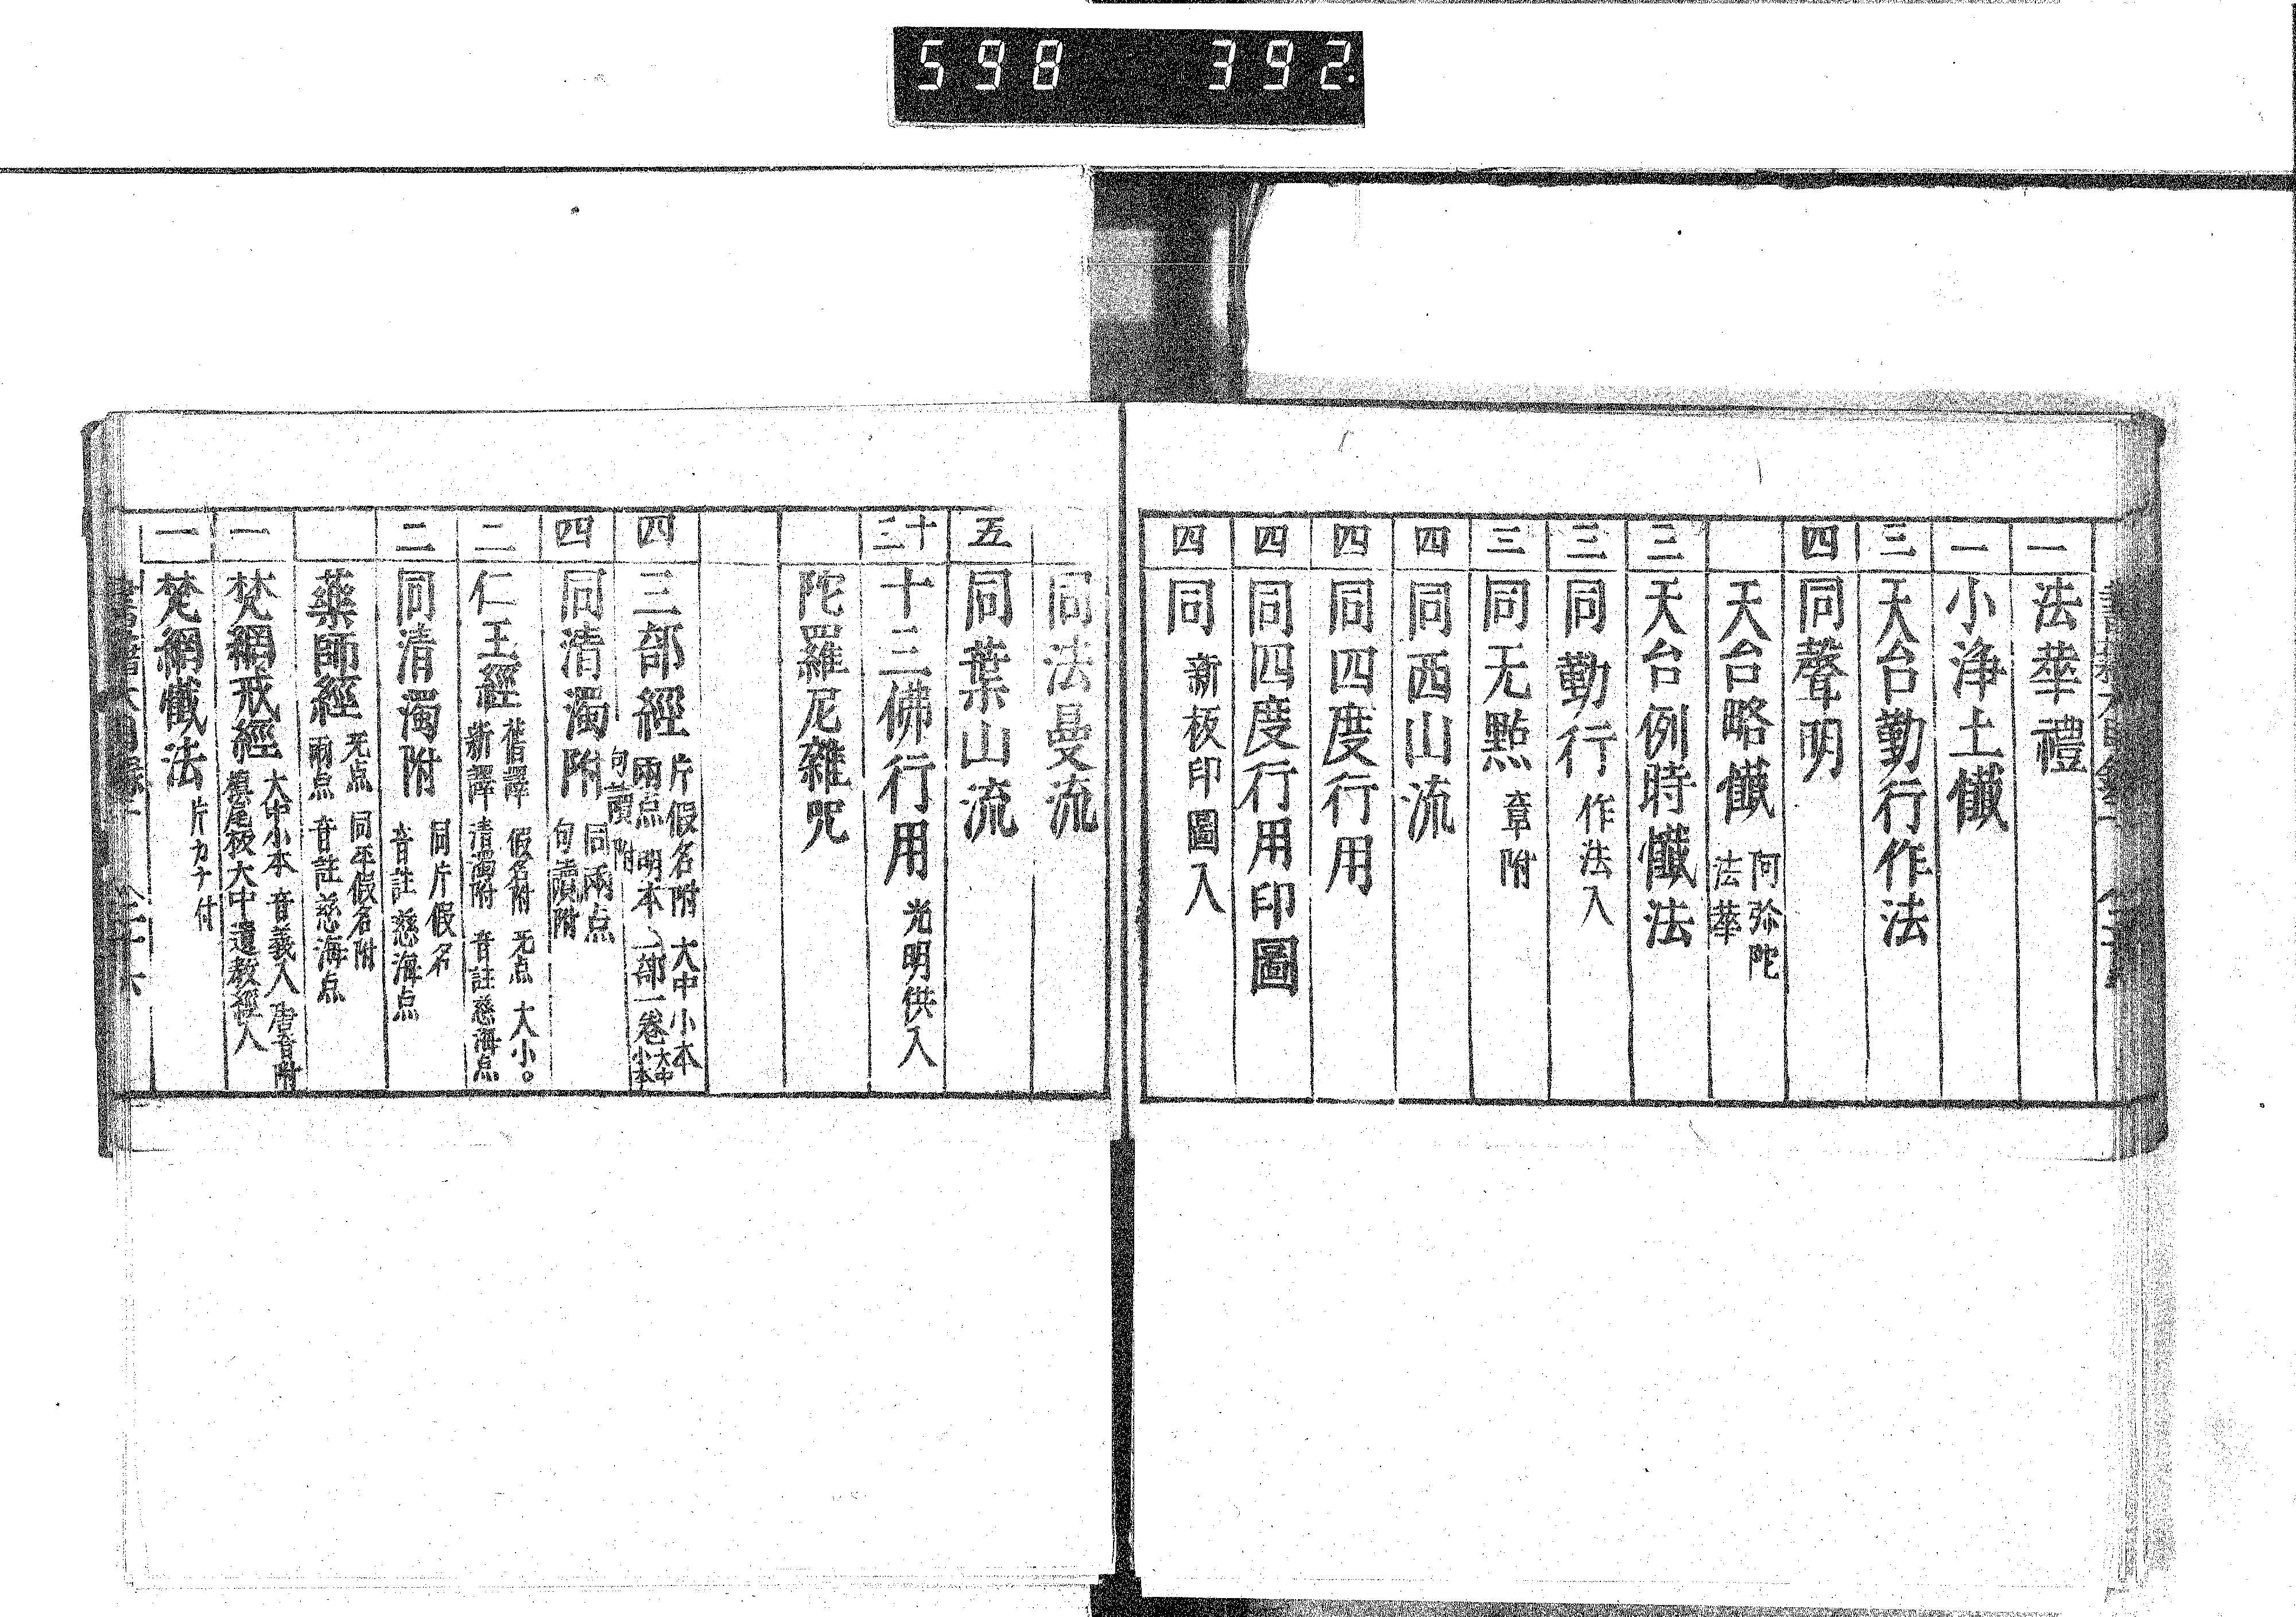 598 392
一 法華禮
一 小淨土懺
三 天台勤行作法
四 同聲明
天台略懺 阿弥陀 法華
三 天台例時懺法
三 同勤行 作法入
三 同无點 章附
四 同西山流
四 同四度行用
四 同四度行用印圖
四 同 新板印圖入
同法曼流
五 同葉山流
十三 十三佛行用 光明供入
陀羅尼雜咒
四 三部經 片假名附 大中小本 兩点 明本 一部一卷 大中小本 句讀附
四 同清濁附 同兩点 句讀附
二 仁王經 舊譯 假名附 无点 大小。 新譯 清濁附 音註慈海点
二 同清濁附 同片假名 音註慈海点
藥師經 无点 同平假名附 兩点 音註慈海点
一 梵網戒經 大中小本 音義入 唐音附 槙尾板大中 遺教經入
一 梵網懺法 片カナ付